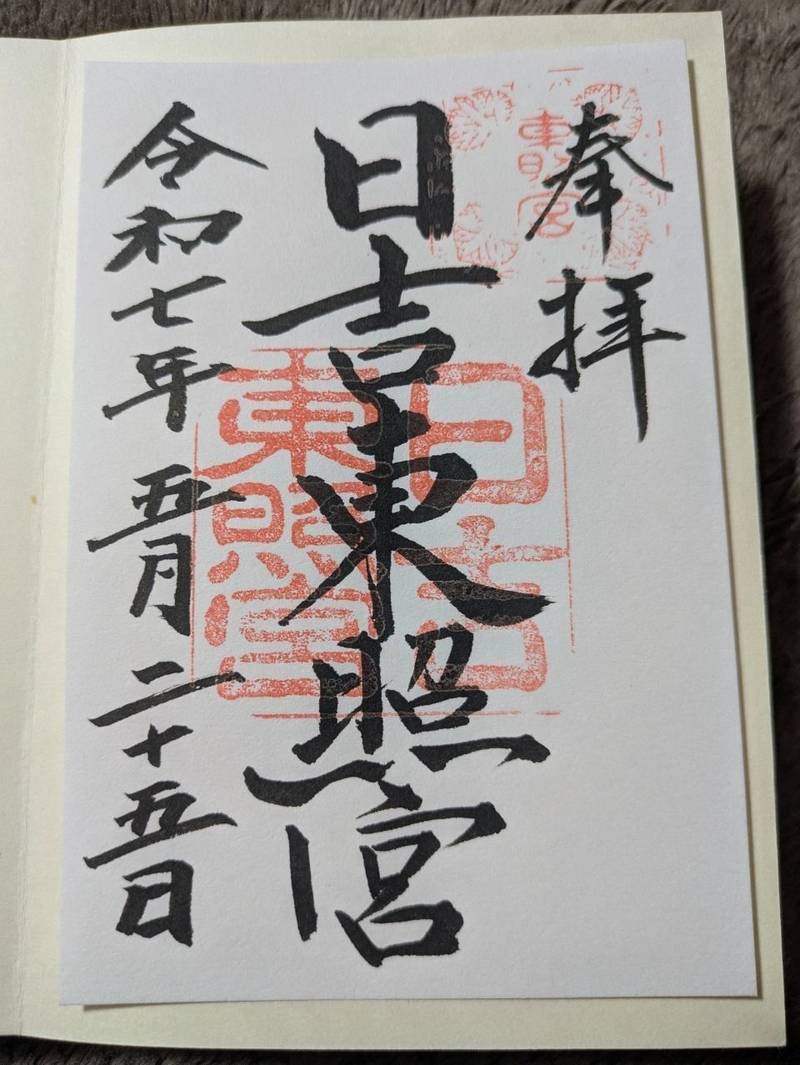 奉拝
東照宮
日吉東照宮
日吉
東照宮
令和七年五月二十五日